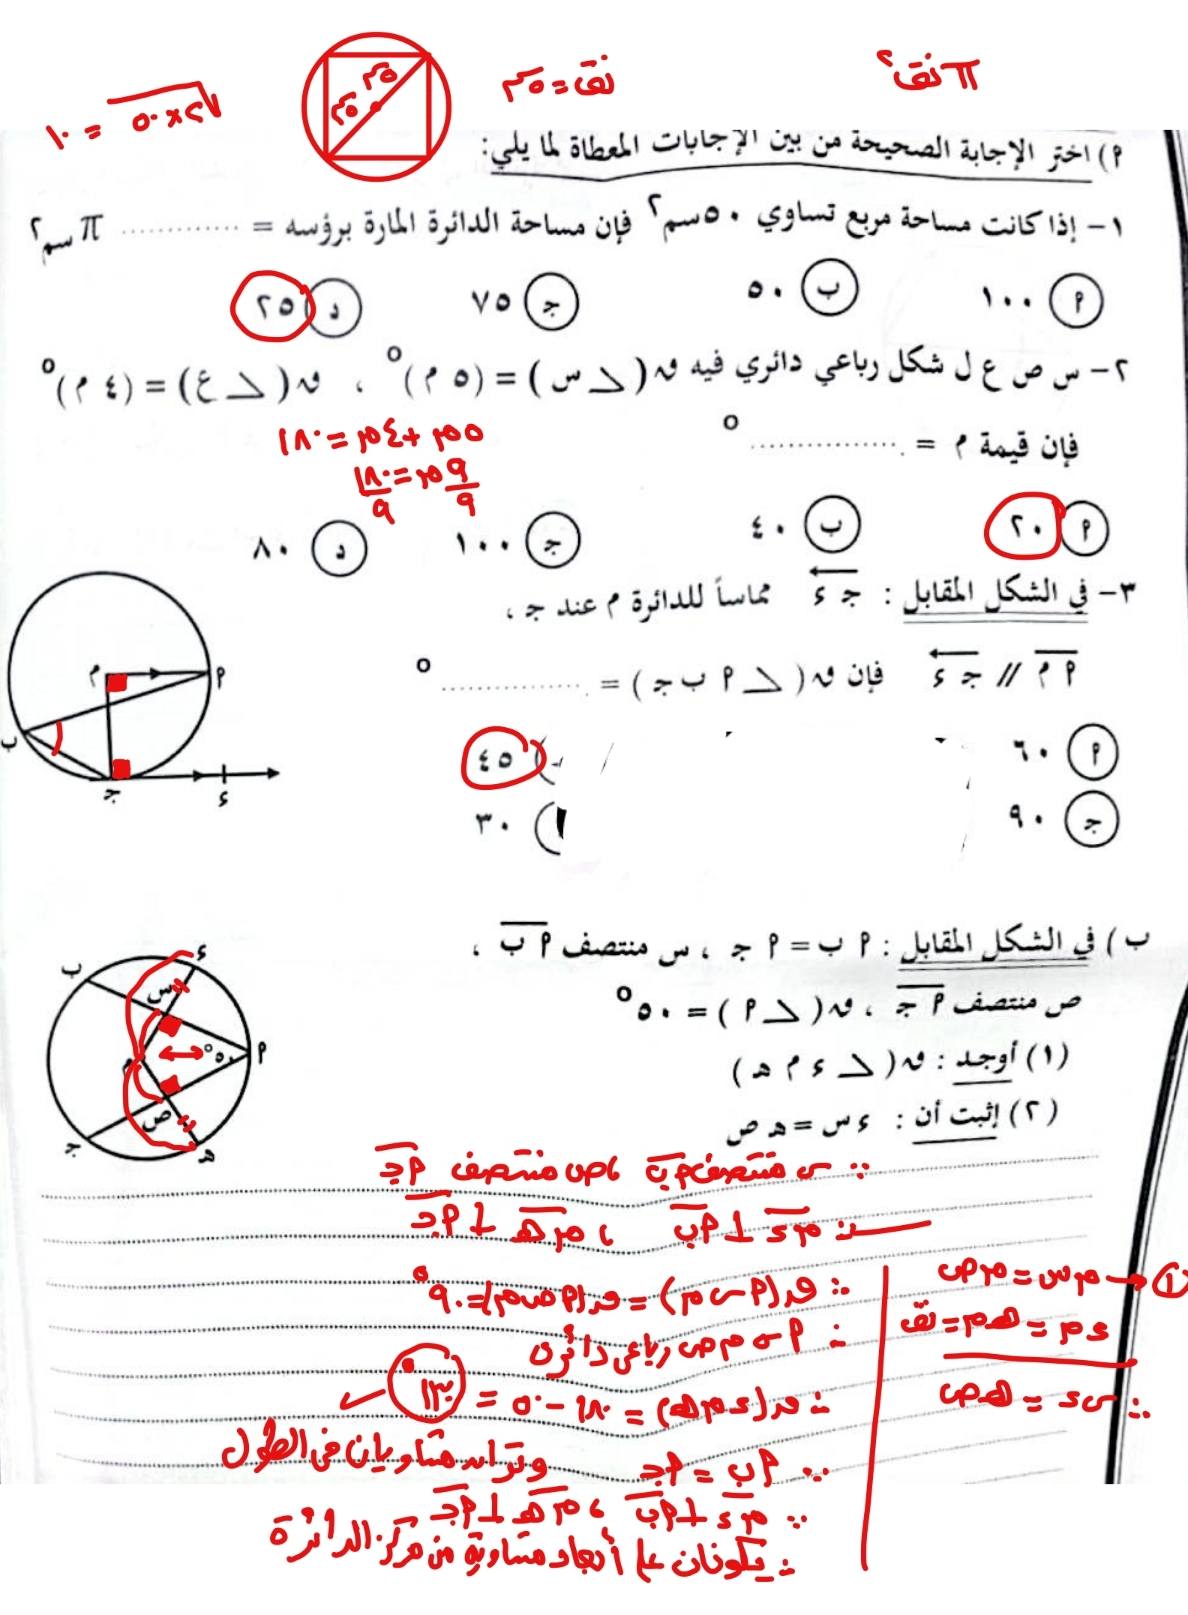 π نق٢
نق = ٥سم
√٢×٥٠ = ١٠
٥سم
٥سم
٢) اختر الإجابة الصحيحة من بين الإجابات المعطاة لما يلي:
١- إذا كانت مساحة مربع تساوي ٥٠ سم٢ فإن مساحة الدائرة المارة برؤسه = ............. π سم٢
٢ ١٠٠ ب ٥٠ ج ٧٥ د ٢٥
٢- س ص ع ل شكل رباعي دائري فيه ق(∠ س) = (٥ م)° ، ق(∠ ع) = (٤ م)°
فإن قيمة م = ................ °
٥م+٤م=١٨٠
٩م/٩=١٨٠/٩
٢ ٢٠ ب ٤٠ ج ١٠٠ د ٨٠
٣- في الشكل المقابل : ج ء مماساً للدائرة م عند ج ،
٢ م // ج ء فإن ق(∠ ٢ ب ج) = ................ °
٢ ٦٠ ٤٥
ج ٩٠ ٣٠
م ٢ ب ج ء
ب) في الشكل المقابل : ٢ ب = ٢ ج ، س منتصف ٢ ب ،
ص منتصف ٢ ج ، ق(∠ ٢) = ٥٠°
(١) أوجد : ق(∠ ء م ه)
(٢) إثبت أن : ء س = ه ص
ء ب س ٢ ٥٠° م ص ج ه
∵ س منتصف ٢ب ، ص منتصف ٢ج
∴ مء ⊥ ٢ب ، مه ⊥ ٢ج
∴ ق(٢ س م) = ق(٢ ص م) = ٩٠°
∴ ٢ س م ص رباعي دائري
∴ ق(ء م ه) = ١٨٠ - ٥٠ = ١٣٠°
∵ ٢ب = ٢ج وتران متساويان في الطول
∵ مء ⊥ ٢ب ، مه ⊥ ٢ج
∴ يكونان على أبعاد متساوية من مركز الدائرة
م س = م ص ← ①
ء م = ه م = نق
∴ س ء = ه ص